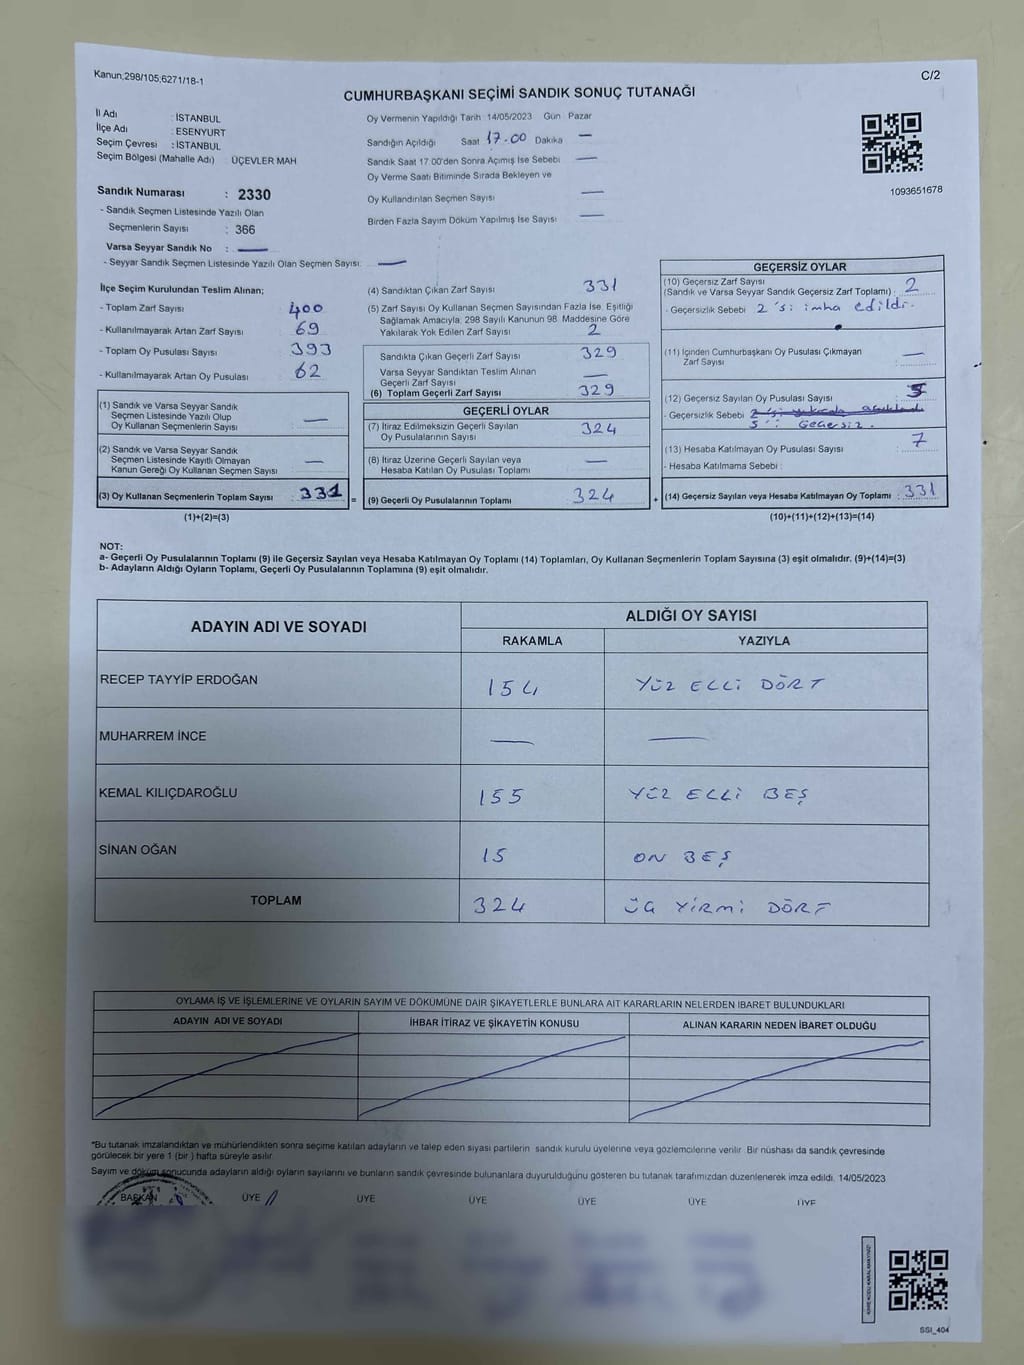 Kanun;298/105;6271/18-1
C/2
CUMHURBAŞKANI SEÇİMİ SANDIK SONUÇ TUTANAĞI
İl Adı : İSTANBUL
İlçe Adı : ESENYURT
Seçim Çevresi : İSTANBUL
Seçim Bölgesi (Mahalle Adı) : ÜÇEVLER MAH
Sandık Numarası : 2330
- Sandık Seçmen Listesinde Yazılı Olan
Seçmenlerin Sayısı : 366
Varsa Seyyar Sandık No : —
- Seyyar Sandık Seçmen Listesinde Yazılı Olan Seçmen Sayısı: —
Oy Vermenin Yapıldığı Tarih 14/05/2023 Gün Pazar
Sandığın Açıldığı Saat 17.00 Dakika —
Sandık Saat 17.00'den Sonra Açımış İse Sebebi —
Oy Verme Saati Bitiminde Sırada Bekleyen ve
Oy Kullandırılan Seçmen Sayısı —
Birden Fazla Sayım Döküm Yapılmış İse Sayısı —
1093651678
İlçe Seçim Kurulundan Teslim Alınan;
- Toplam Zarf Sayısı : 400
- Kullanılmayarak Artan Zarf Sayısı : 69
- Toplam Oy Pusulası Sayısı : 393
- Kullanılmayarak Artan Oy Pusulası : 62
(1) Sandık ve Varsa Seyyar Sandık
Seçmen Listesinde Yazılı Olup
Oy Kullanan Seçmenlerin Sayısı : —
(2) Sandık ve Varsa Seyyar Sandık
Seçmen Listesinde Kayıtlı Olmayan
Kanun Gereği Oy Kullanan Seçmen Sayısı : —
(3) Oy Kullanan Seçmenlerin Toplam Sayısı : 331 =
(1)+(2)=(3)
(4) Sandıktan Çıkan Zarf Sayısı : 331
(5) Zarf Sayısı Oy Kullanan Seçmen Sayısından Fazla İse, Eşitliği
Sağlamak Amacıyla, 298 Sayılı Kanunun 98. Maddesine Göre
Yakılarak Yok Edilen Zarf Sayısı : 2
Sandıkta Çıkan Geçerli Zarf Sayısı : 329
Varsa Seyyar Sandıktan Teslim Alınan
Geçerli Zarf Sayısı : —
(6) Toplam Geçerli Zarf Sayısı : 329
GEÇERLİ OYLAR
(7) İtiraz Edilmeksizin Geçerli Sayılan
Oy Pusulalarının Sayısı : 324
(8) İtiraz Üzerine Geçerli Sayılan veya
Hesaba Katılan Oy Pusulası Toplamı : —
(9) Geçerli Oy Pusulalarının Toplamı : 324 +
GEÇERSİZ OYLAR
(10) Geçersiz Zarf Sayısı
(Sandık ve Varsa Seyyar Sandık Geçersiz Zarf Toplamı) : 2
- Geçersizlik Sebebi 2'si imha edildi.
(11) İçinden Cumhurbaşkanı Oy Pusulası Çıkmayan
Zarf Sayısı : —
(12) Geçersiz Sayılan Oy Pusulası Sayısı : 5
- Geçersizlik Sebebi 2'si
5'i Geçersiz.
(13) Hesaba Katılmayan Oy Pusulası Sayısı : 7
- Hesaba Katılmama Sebebi :
(14) Geçersiz Sayılan veya Hesaba Katılmayan Oy Toplamı : 331
(10)+(11)+(12)+(13)=(14)
NOT:
a- Geçerli Oy Pusulalarının Toplamı (9) ile Geçersiz Sayılan veya Hesaba Katılmayan Oy Toplamı (14) Toplamları, Oy Kullanan Seçmenlerin Toplam Sayısına (3) eşit olmalıdır. (9)+(14)=(3)
b- Adayların Aldığı Oyların Toplamı, Geçerli Oy Pusulalarının Toplamına (9) eşit olmalıdır.
ADAYIN ADI VE SOYADI
ALDIĞI OY SAYISI
RAKAMLA YAZIYLA
RECEP TAYYİP ERDOĞAN 154 YÜZ ELLİ DÖRT
MUHARREM İNCE — —
KEMAL KILIÇDAROĞLU 155 YÜZ ELLİ BEŞ
SİNAN OĞAN 15 ON BEŞ
TOPLAM 324 ÜÇ YİRMİ DÖRT
OYLAMA İŞ VE İŞLEMLERİNE VE OYLARIN SAYIM VE DÖKÜMÜNE DAİR ŞİKAYETLERLE BUNLARA AİT KARARLARIN NELERDEN İBARET BULUNDUKLARI
ADAYIN ADI VE SOYADI İHBAR İTİRAZ VE ŞİKAYETİN KONUSU ALINAN KARARIN NEDEN İBARET OLDUĞU
*Bu tutanak imzalandıktan ve mühürlendikten sonra seçime katılan adayların ve talep eden siyasi partilerin sandık kurulu üyelerine veya gözlemcilerine verilir. Bir nüshası da sandık çevresinde
görülecek bir yere 1 (bir ) hafta süreyle asılır.
Sayım ve döküm sonucunda adayların aldığı oyların sayılarını ve bunların sandık çevresinde bulunanlara duyurulduğunu gösteren bu tutanak tarafımızdan düzenlenerek imza edildi. 14/05/2023
BAŞKAN ÜYE ÜYE ÜYE ÜYE ÜYE ÜYE
SSI_404